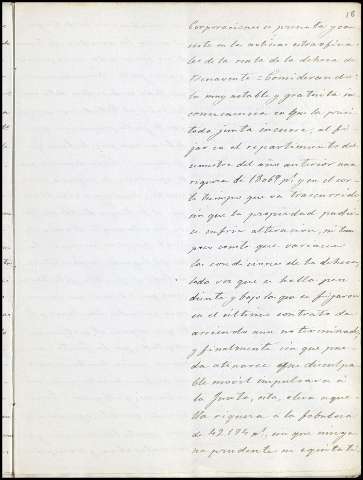 16
Corporaciones se presenta y con-
siste en la noticias extraoficia
les de la renta de la dehesa de
Benavente = Considerando
la muy notable y gratuita in
consecuencia en que la preci
tado junta incurre, al fi
jar en el repartimiento del
semestre del año anterior una
riqueza de 18069 p.s y en el cor-
to tiempo que va trascurrido
sin que la propiedad pudie
se sufrir alteracion, ni tam
poco conste que variaran
las condiciones de la dehesa,
toda vez que se halla pen
diente y bajo la que se fijaron
en el último contrato de
arriendo aun no terminado,
y finalmente sin que pue-
da atinarse que disculpa
ble movil impulsara á
la Junta, esta, eleva aque-
lla riqueza á la fabulosa
de 42.174 p.s, sin que ningu
na prudente ni equitati